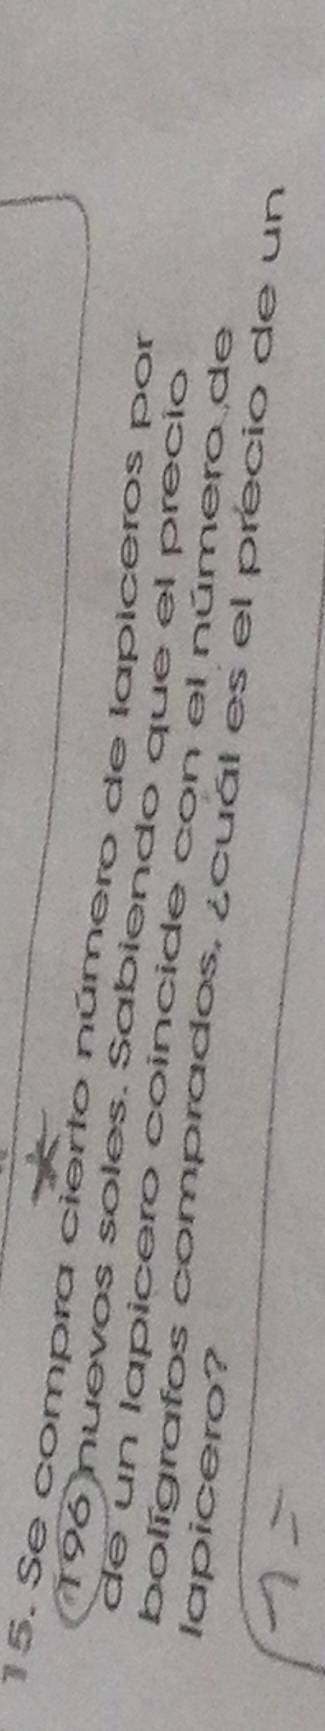 15. Se compra cierto número de lapiceros por
196 nuevos soles. Sabiendo que el precio
de un lapicero coincide con el número de
bolígrafos comprados, ¿cuál es el precio de un
lapicero?